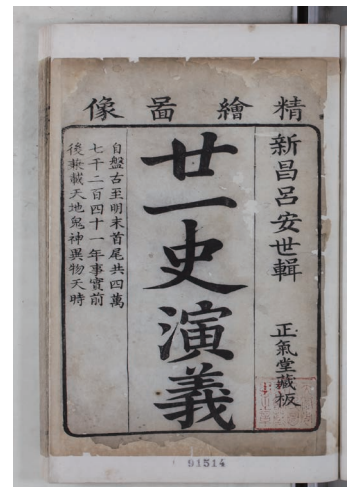 精繪啚像
新昌呂安世輯
正氣堂藏板
廿一史演義
自盤古至明末首尾共四萬
七千二百四十一年事實前
後兼載天地鬼神異物天時
91514